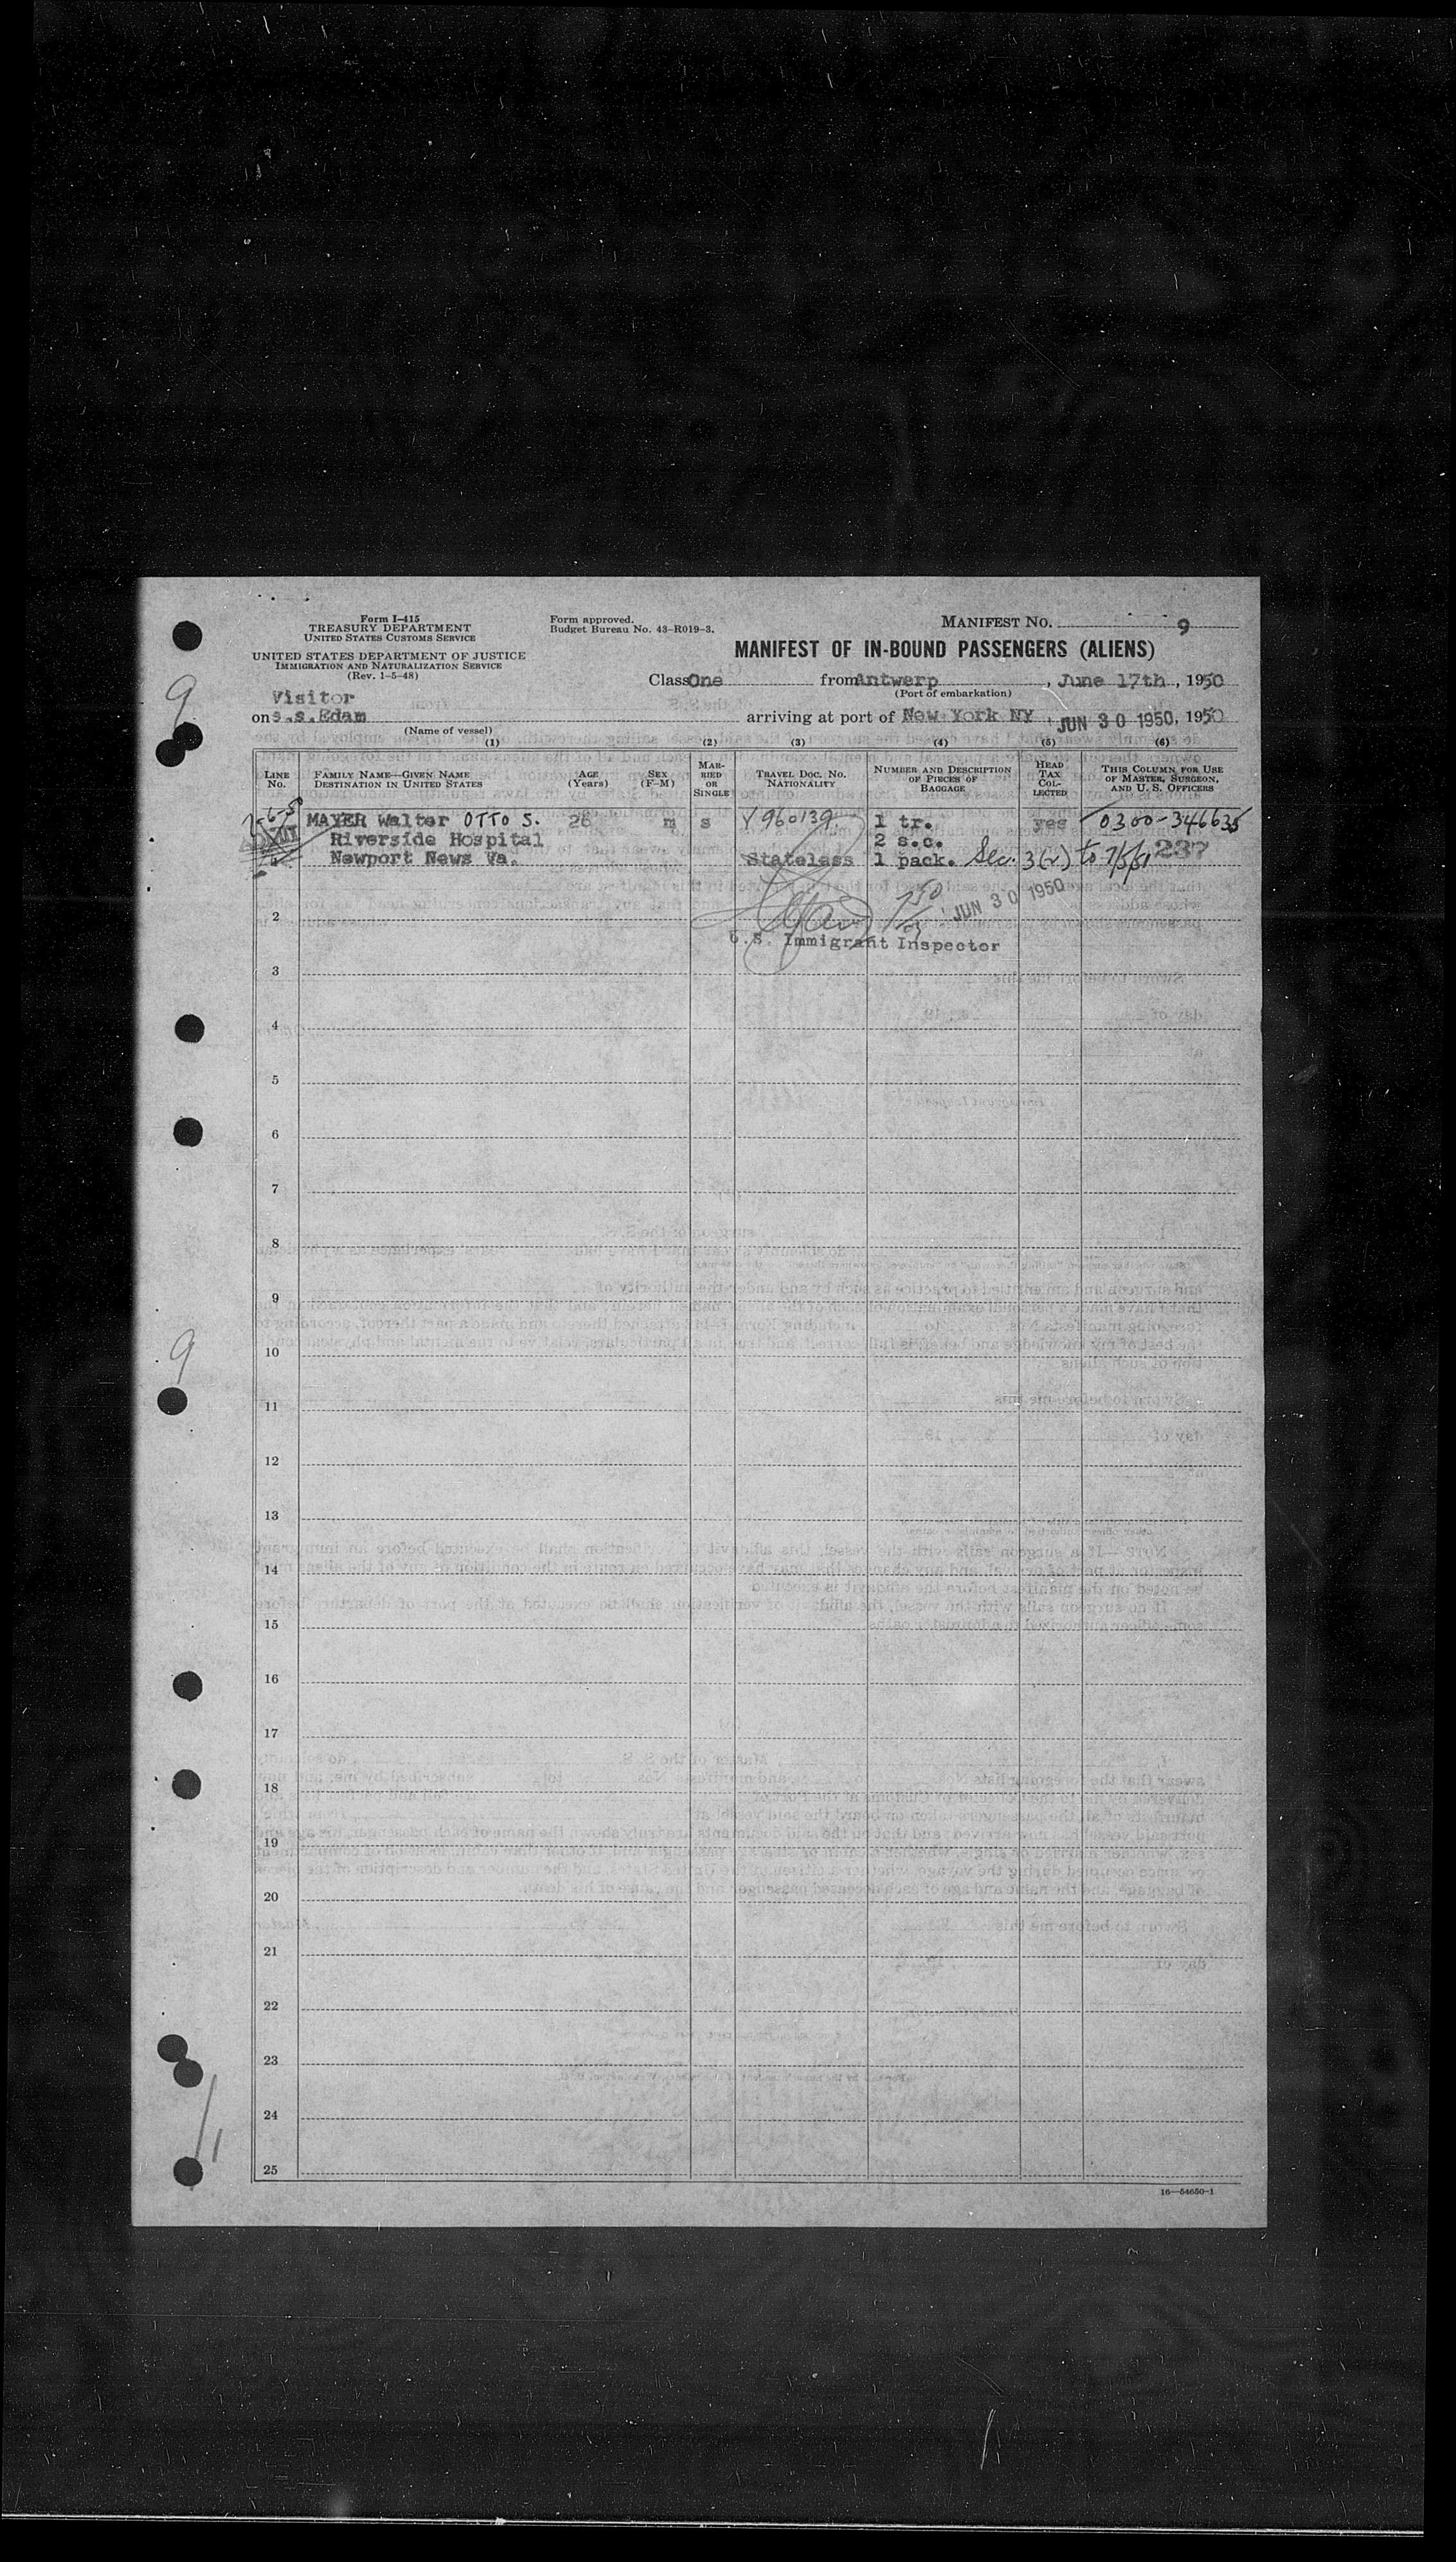 Form I-415
TREASURY DEPARTMENT
UNITED STATES CUSTOMS SERVICE
UNITED STATES DEPARTMENT OF JUSTICE
IMMIGRATION AND NATURALIZATION SERVICE
(Rev. 1-5-48)
Form approved.
Budget Bureau No. 43-R019-3.
MANIFEST NO. 9
MANIFEST OF IN-BOUND PASSENGERS (ALIENS)
Class One from Antwerp, June 17th, 1950
(Port of embarkation)
Visitor
on s.s. Edam arriving at port of New York NY, JUN 30 1950, 1950
(Name of vessel)
(1) (2) (3) (4) (5) (6)
LINE NO. FAMILY NAME—GIVEN NAME DESTINATION IN UNITED STATES AGE (Years) SEX (F-M) MARRIED OR SINGLE TRAVEL DOC. NO. NATIONALITY NUMBER AND DESCRIPTION OF PIECES OF BAGGAGE HEAD TAX COLLECTED THIS COLUMN FOR USE OF MASTER, SURGEON, AND U. S. OFFICERS
MAYER Walter OTTO S. 26 m s V 960139 1 tr. yes 0300-346635
Riverside Hospital 2 s.c.
Newport News Va. Stateless 1 pack. Sec. 3(2) to 7/5/51 237
2 JUN 30 1950
U.S. Immigrant Inspector
3
4
5
6
7
8
9
10
11
12
13
14
15
16
17
18
19
20
21
22
23
24
25
16—54650-1
9
9